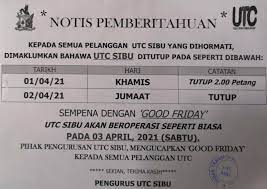 * NOTIS PEMBERITAHUAN *
UTC
KEPADA SEMUA PELANGGAN UTC SIBU YANG DIHORMATI,
DIMAKLUMKAN BAHAWA UTC SIBU DITUTUP PADA SEPERTI DIBAWAH:
TARIKH HARI CATATAN
01/04/21 KHAMIS TUTUP 2.00 Petang
02/04/21 JUMAAT TUTUP
SEMPENA DENGAN 'GOOD FRIDAY'
UTC SIBU AKAN BEROPERASI SEPERTI BIASA
PADA 03 APRIL, 2021 (SABTU).
PIHAK PENGURUSAN UTC SIBU, MENGUCAPKAN 'GOOD FRIDAY'
KEPADA SEMUA PELANGGAN UTC
SEKIAN, TERIMA KASIH
PENGURUS UTC SIBU